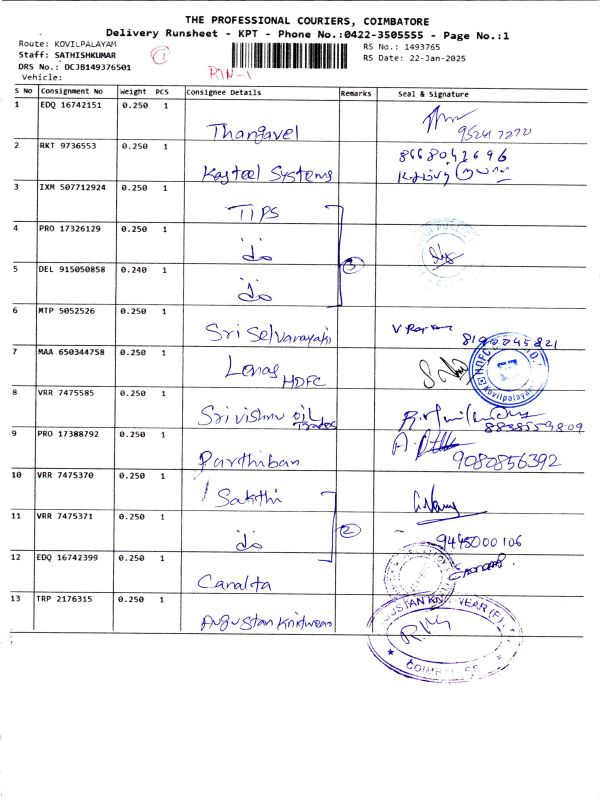 THE PROFESSIONAL COURIERS, COIMBATORE
Delivery Runsheet - KPT - Phone No.:0422-3505555 - Page No.:1
Route: KOVILPALAYAM
RS No.: 1493765
Staff: SATHISHKUMAR
1
RS Date: 22-Jan-2025
DRS No.: DCJB149376501
RTN-1
Vehicle:
S No Consignment No Weight PCS Consignee Details Remarks Seal & Signature
1 EDQ 16742151 0.250 1
Thangavel
2 RKT 9736553 0.250 1 8668042696
Kasteel Systems
3 IXM 507712924 0.250 1
TIPS
4 PRO 17326129 0.250 1
do
5 DEL 915050858 0.240 1 3
do
6 MTP 5052526 0.250 1
Sri Selvanayaki 8190045821
7 MAA 650344758 0.250 1
Lenas HDFC
Kovilpalayam
8 VRR 7475585 0.250 1
Sri vishnu oil Trades 8838559809
9 PRO 17388792 0.250 1
Parthiban 9080856392
10 VRR 7475370 0.250 1
Sakthi
11 VRR 7475371 0.250 1 2
do 9445000106
12 EDQ 16742399 0.250 1
Canalta
13 TRP 2176315 0.250 1
Augustan Knitwear